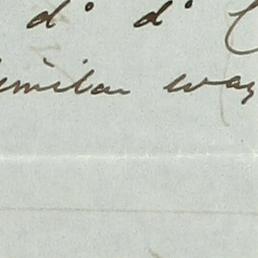 d° d°
similar way